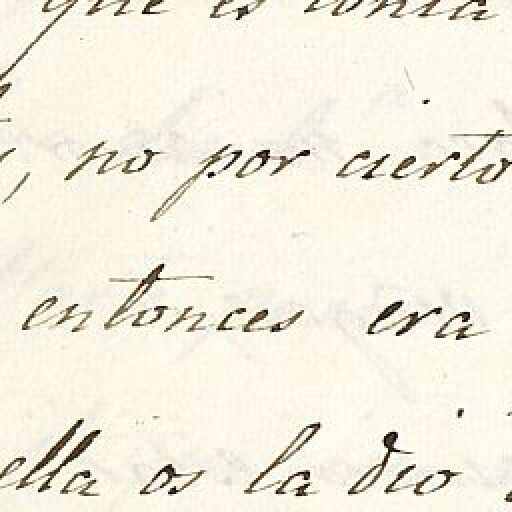 que es
, no por cierto
entonces era
ella os la dio